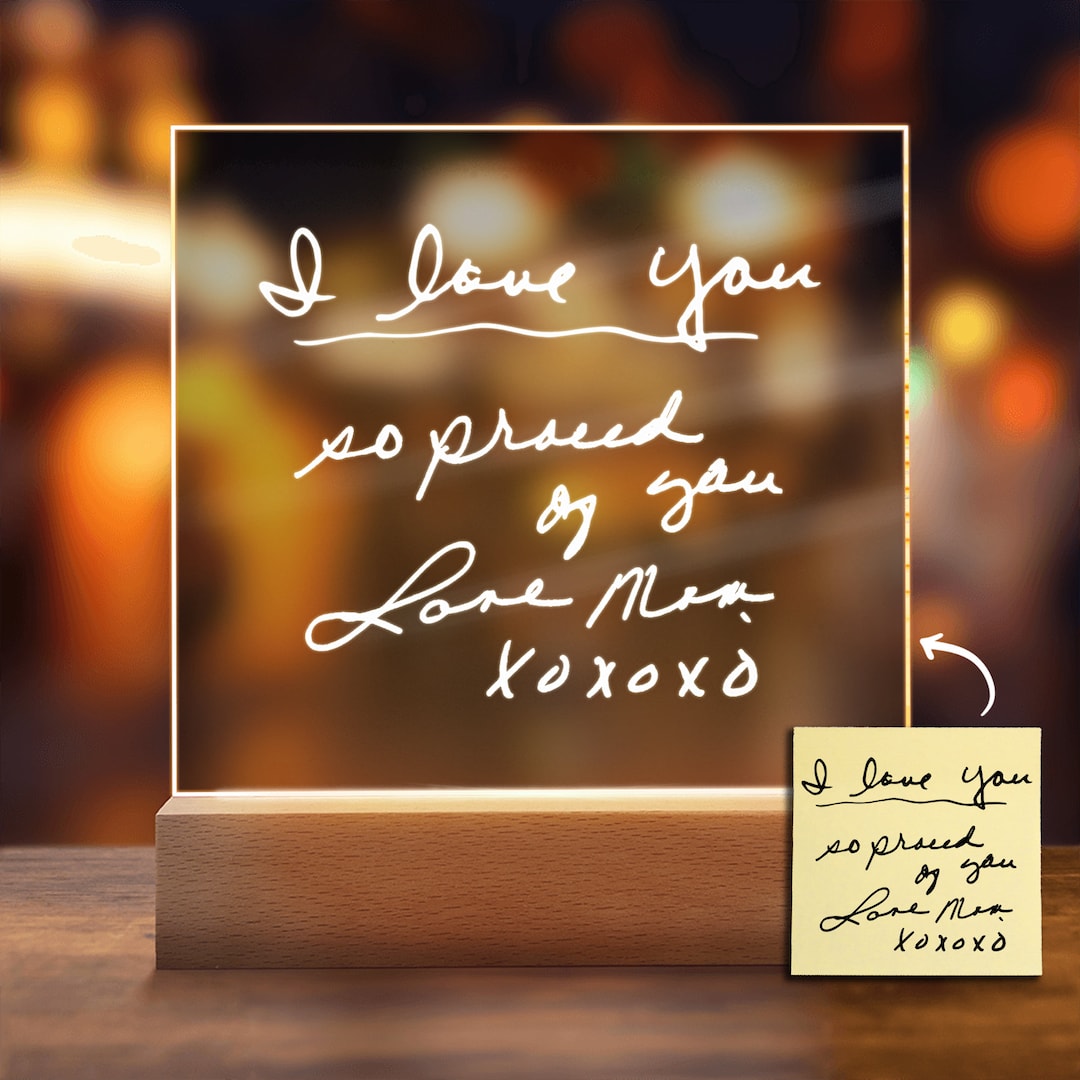 I love you
so proud
of you
Love Mom
xoxoxo
I love you
so proud
of you
Love Mom
xoxoxo